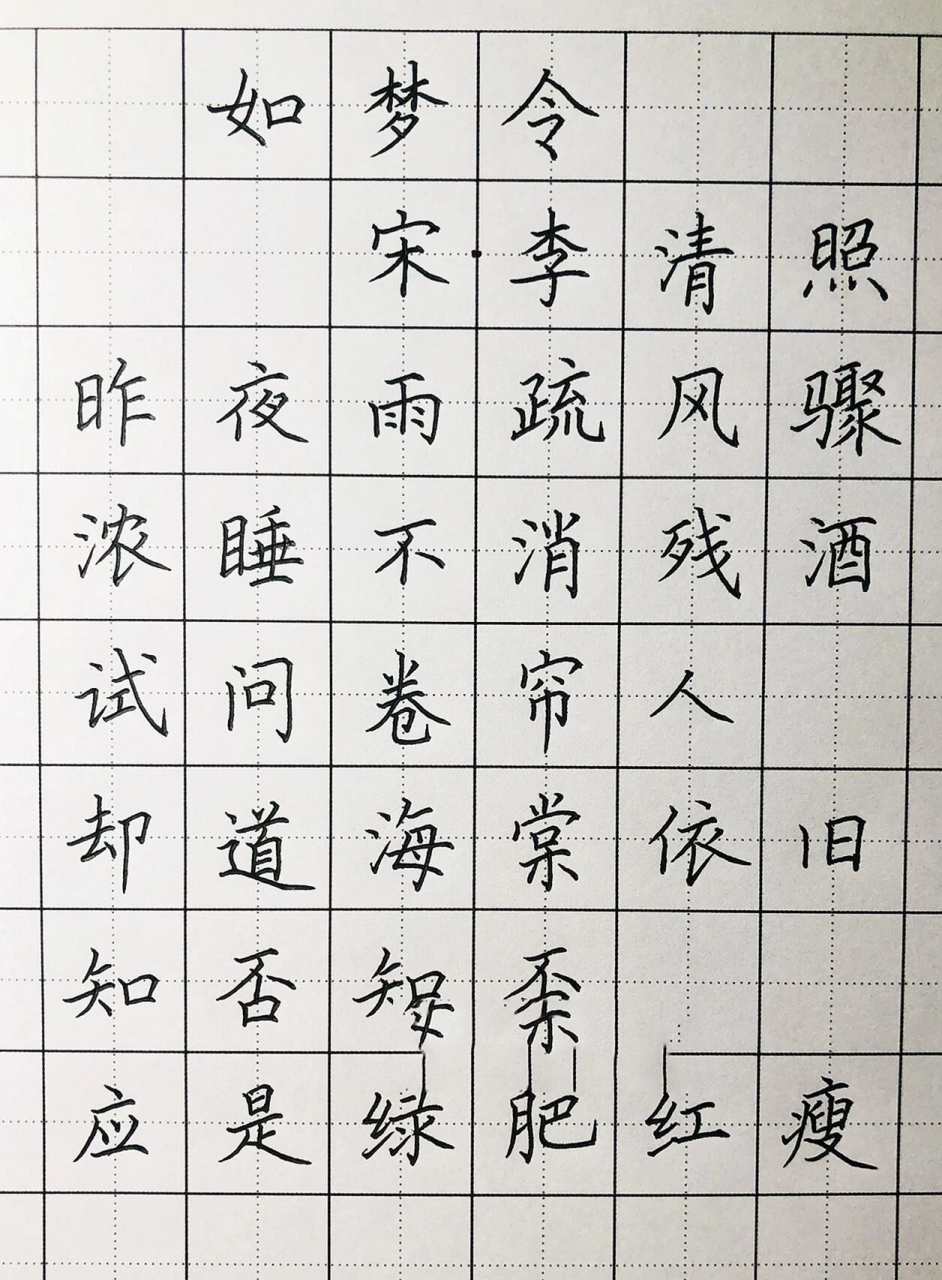 如梦令
宋·李清照
昨夜雨疏风骤
浓睡不消残酒
试问卷帘人
却道海棠依旧
知否
应是绿肥红瘦